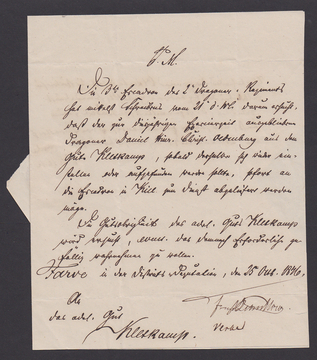 P. M.
Die 3te Escadron des 2t Dragoner-Regiments
hat mittelst Schreibens vom 21t d. Mts. darum ersucht,
daß der zur diesjährigen Exercierzeit ausgebliebene
Dragoner Daniel Hinr. Christ. Oldenburg aus dem
Gute Kletkamp, sobald derselbe sich wieder ein-
stellen oder aufgefunden werden sollte, sofort an
die Escadron in Kiel zum Dienst abgeliefert werden
möge.
Die Gutsobrigkeit des adel. Guts Kletkamp
wird ersucht, event. das demnach Erforderliche ge-
fällig wahrnehmen zu wollen.
Farve in der Districts Deputation, den 25 Oct. 1846.
An
das adel. Gut
Kletkamp.